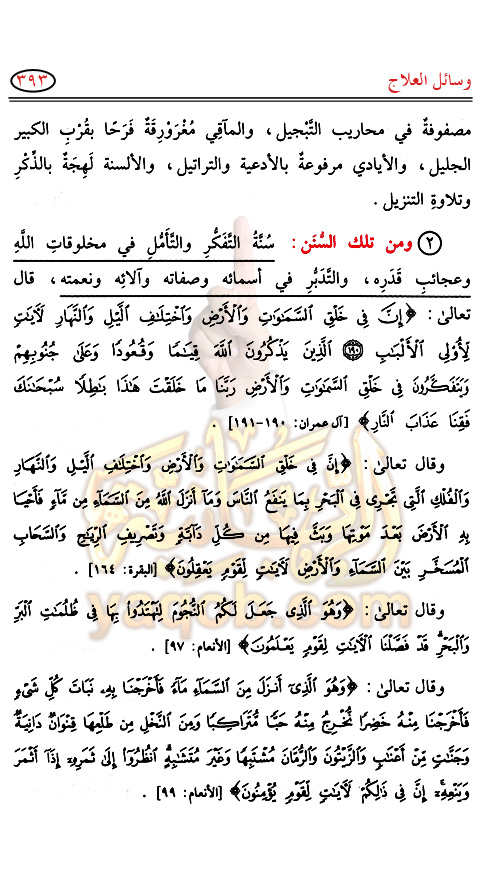 وسائل العلاج
٣٩٣
مصفوفةٌ في محاريب التَّبْجيل، والمآقي مُغْرَوْرِقَةٌ فَرَحًا بقُرْبِ الكبير
الجليل، والأيادي مرفوعةٌ بالأدعية والتراتيل، والألسنة لَهِجَةٌ بالذِّكْرِ
وتلاوةِ التنزيل.
٢ ومن تلك السُّنَن: سُنَّةُ التَّفَكُّرِ والتَّأَمُّلِ في مخلوقاتِ اللَّهِ
وعجائبِ قَدَرِه، والتَّدَبُّرِ في أسمائه وصفاته وآلائِه ونعمته، قال
تعالى: ﴿إِنَّ فِي خَلْقِ السَّمَاوَاتِ وَالْأَرْضِ وَاخْتِلَافِ اللَّيْلِ وَالنَّهَارِ لَآيَاتٍ
لِأُولِي الْأَلْبَابِ ﴿١٩٠﴾ الَّذِينَ يَذْكُرُونَ اللَّهَ قِيَامًا وَقُعُودًا وَعَلَى جُنُوبِهِمْ
وَيَتَفَكَّرُونَ فِي خَلْقِ السَّمَاوَاتِ وَالْأَرْضِ رَبَّنَا مَا خَلَقْتَ هَذَا بَاطِلًا سُبْحَانَكَ
فَقِنَا عَذَابَ النَّارِ﴾ [آل عمران: ١٩٠-١٩١].
وقال تعالى: ﴿إِنَّ فِي خَلْقِ السَّمَاوَاتِ وَالْأَرْضِ وَاخْتِلَافِ اللَّيْلِ وَالنَّهَارِ
وَالْفُلْكِ الَّتِي تَجْرِي فِي الْبَحْرِ بِمَا يَنفَعُ النَّاسَ وَمَا أَنزَلَ اللَّهُ مِنَ السَّمَاءِ مِن مَّاءٍ فَأَحْيَا
بِهِ الْأَرْضَ بَعْدَ مَوْتِهَا وَبَثَّ فِيهَا مِن كُلِّ دَابَّةٍ وَتَصْرِيفِ الرِّيَاحِ وَالسَّحَابِ
الْمُسَخَّرِ بَيْنَ السَّمَاءِ وَالْأَرْضِ لَآيَاتٍ لِّقَوْمٍ يَعْقِلُونَ﴾ [البقرة: ١٦٤].
وقال تعالى: ﴿وَهُوَ الَّذِي جَعَلَ لَكُمُ النُّجُومَ لِتَهْتَدُوا بِهَا فِي ظُلُمَاتِ الْبَرِّ
وَالْبَحْرِ قَدْ فَصَّلْنَا الْآيَاتِ لِقَوْمٍ يَعْلَمُونَ﴾ [الأنعام: ٩٧].
وقال تعالى: ﴿وَهُوَ الَّذِي أَنزَلَ مِنَ السَّمَاءِ مَاءً فَأَخْرَجْنَا بِهِ نَبَاتَ كُلِّ شَيْءٍ
فَأَخْرَجْنَا مِنْهُ خَضِرًا نُّخْرِجُ مِنْهُ حَبًّا مُّتَرَاكِبًا وَمِنَ النَّخْلِ مِن طَلْعِهَا قِنْوَانٌ دَانِيَةٌ
وَجَنَّاتٍ مِّنْ أَعْنَابٍ وَالزَّيْتُونَ وَالرُّمَّانَ مُشْتَبِهًا وَغَيْرَ مُتَشَابِهٍ انظُرُوا إِلَى ثَمَرِهِ إِذَا أَثْمَرَ
وَيَنْعِهِ إِنَّ فِي ذَلِكُمْ لَآيَاتٍ لِّقَوْمٍ يُؤْمِنُونَ﴾ [الأنعام: ٩٩].
yaqob.com